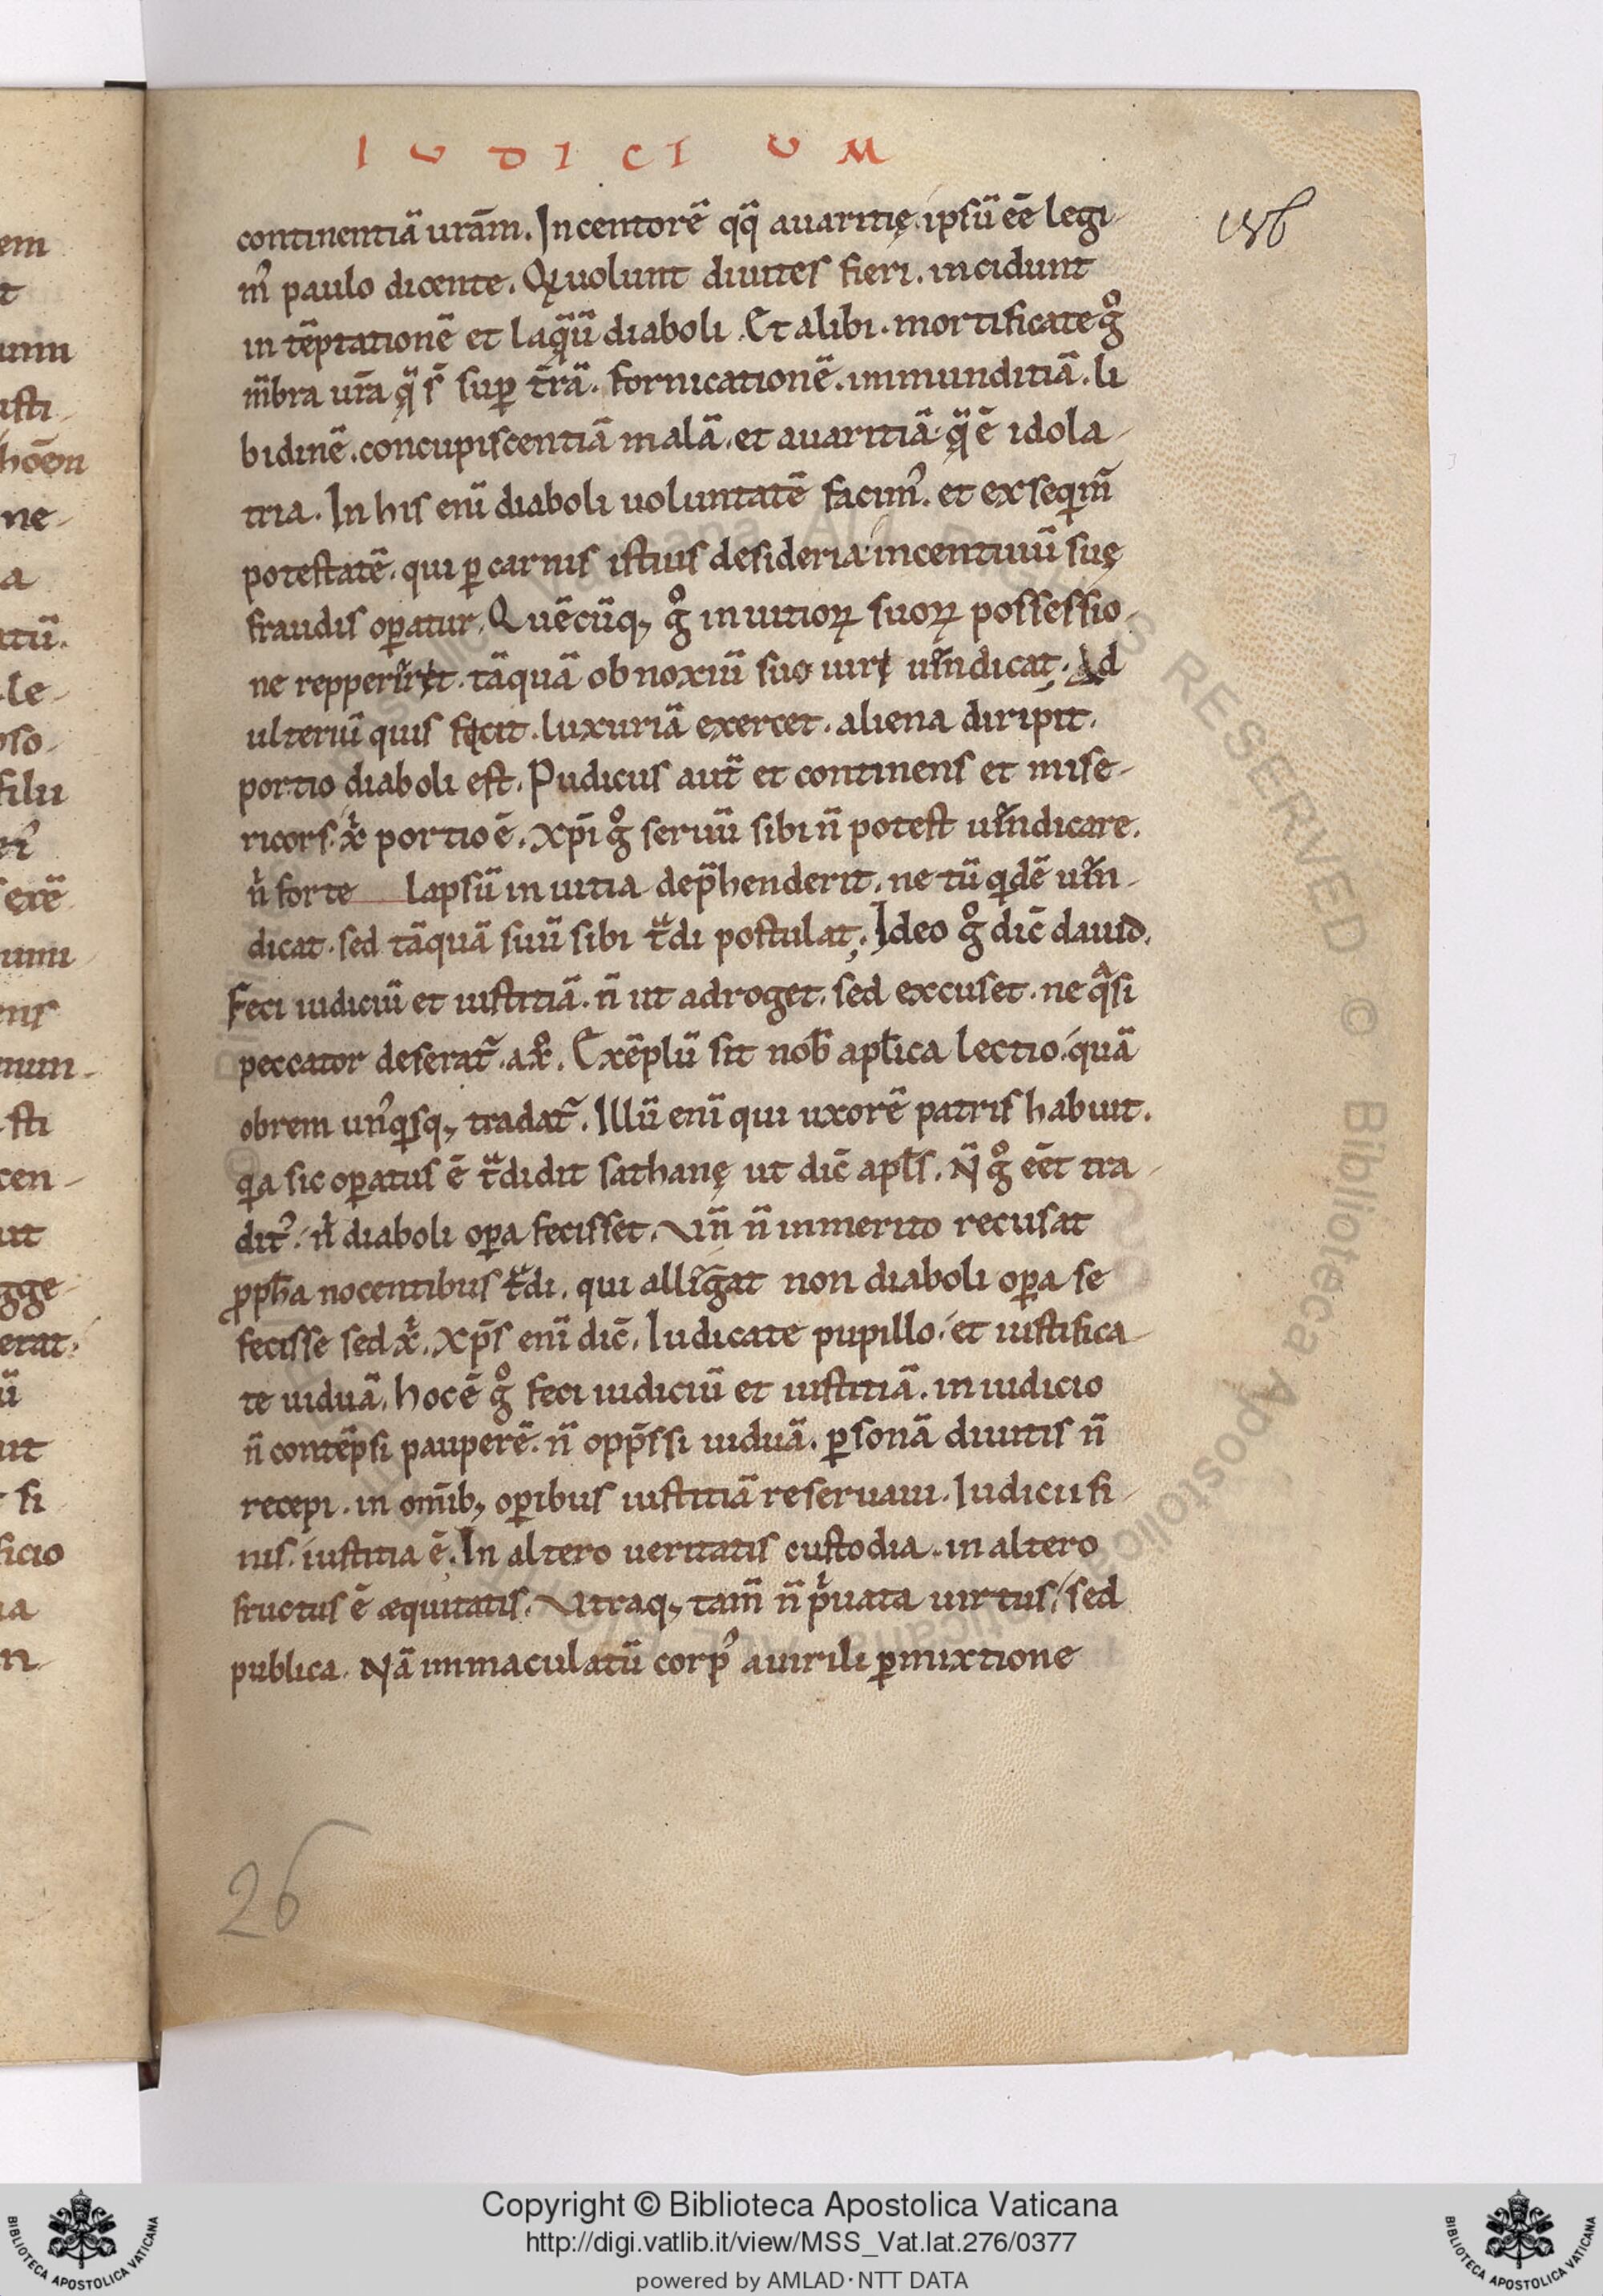 IUDICIUM
continentiā urām. Incentorē qq̄ auaritię ipsū eē legi
m᾽ paulo dicente. Q̇ uolunt diuites fieri. incidunt
in tēptationē et laq̄ū diaboli. Et alibi. mortificate gͦ
m̄bra ur̄a q̄ s̄ suꝑ t̄rā. fornicationē. immunditiā. li
bidinē. concupiscentiā malā. et auaritiā q̄ ē idola-
tria. In his enī diaboli uoluntatē facim᾽. et exseqim̄
potestatē. qui ꝑ carnis istius desideria incentiuū suę
fraudis oꝑatur. Quēcūq; gͦ in uitioꝝ suoꝝ possessio-
ne tāquā obnoxiū suo iuri uindicat. Ad
ulteriū quis fecit. luxuriā exercet. aliena diripit.
portio diaboli est. Pudicus aut̄ et continens et mise-
ricors. xr̄ portio ē. Xp̄i gͦ seruū sibi n̄ potest uindicare.
nⁱ forte lapsū in uitia dep̄henderit. ne tū qⁱdē uin-
dicat. sed tāquā suū sibi tᵃdi postulat; Ideo gͦ dic̄ dauid.
Feci iudiciū et iustitiā. n̄ ut adroget. sed excuset. ne qᵃsi
peccator deserat᷑. a xͦ. Exēplū sit nob̄ apl̄ica lectio. quā
obrem un᾽qⁱsq; tradat᷑. Illū enī qui uxorē patris habuit.
qⁱa sic oꝑatus ē tᵃdidit sathanę ut dic̄ apl̄s. N̄ gͦ eēt tra-
dit᾽. nⁱ diaboli oꝑa fecisset. Vn̄ n̄ inmerito recusat
ꝓph̄a nocentibus tᵃdi. qui allegat non diaboli oꝑa se
fecisse sed xⁱ. Xp̄s enī dic̄. Iudicate pupillo. et iustifica-
te uiduā. hoc ē gͦ feci iudiciū et iustitiā. in iudicio
n̄ contēpsi pauperē. n̄ opp̄ssi uiduā. ꝑsonā diuitis n̄
recepi. in om̄ib; oꝑibus iustitiā reseruaui. Iudicii fi-
nis. iustitia ē. In altero ueritatis custodia. in altero
fructus ē æquitatis. Vtraq; tam̄ n̄ pⁱuata uirtus. sed
publica. Nā immaculatū corp᾽ a uirili ꝑmixtione
26
Copyright © Biblioteca Apostolica Vaticana
http://digi.vatlib.it/view/MSS_Vat.lat.276/0377
powered by AMLAD·NTT DATA
BIBLIOTECA APOSTOLICA VATICANA
BIBLIOTECA APOSTOLICA VATICANA